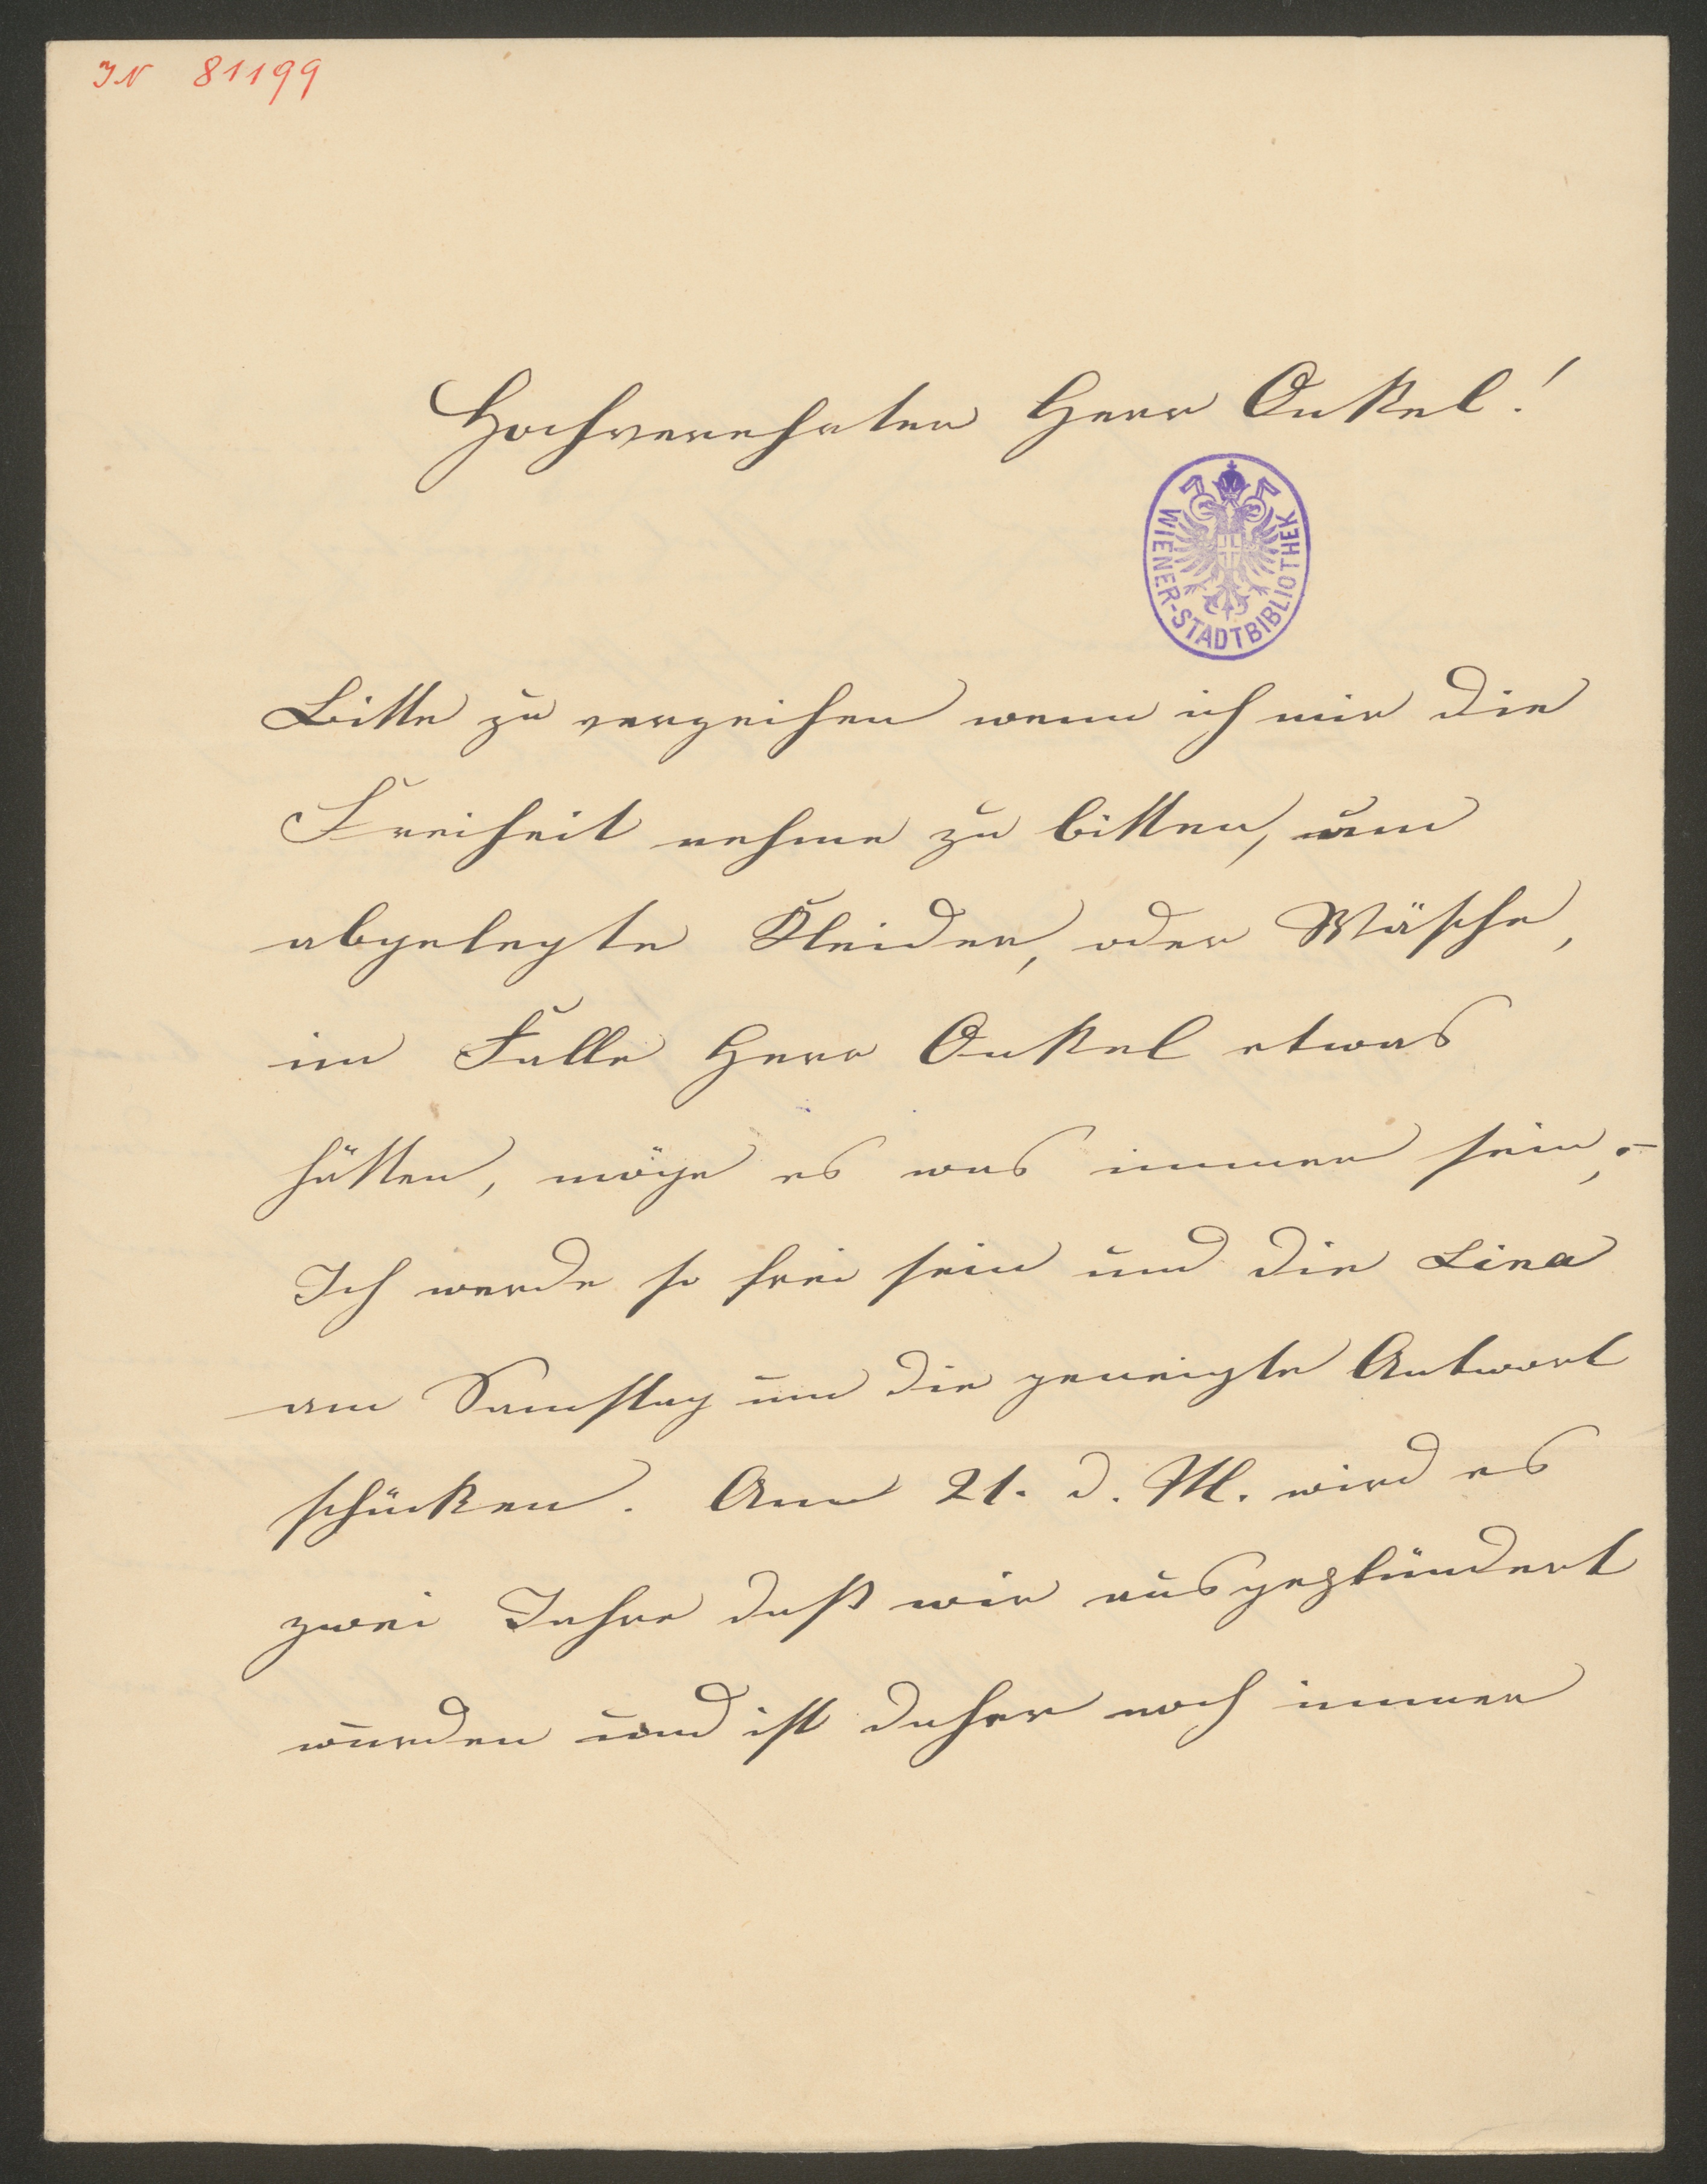 IN 81199
Hochverehrter Herr Onkel!
WIENER-STADTBIBLIOTHEK
Bitte zu verzeihen wenn ich mir die
Freiheit nehme zu bitten, um
abgelegte Kleider, oder Wäsche,
im Falle Herr Onkel etwas
hätten, möge es was immer sein;-
Ich werde so frei sein und die Lina
am Samstag um die geneigte Antwort
schücken. Am 21. d. M. wird es
zwei Jahre daß wir ausgeplündert
wurden und ist daher noch immer